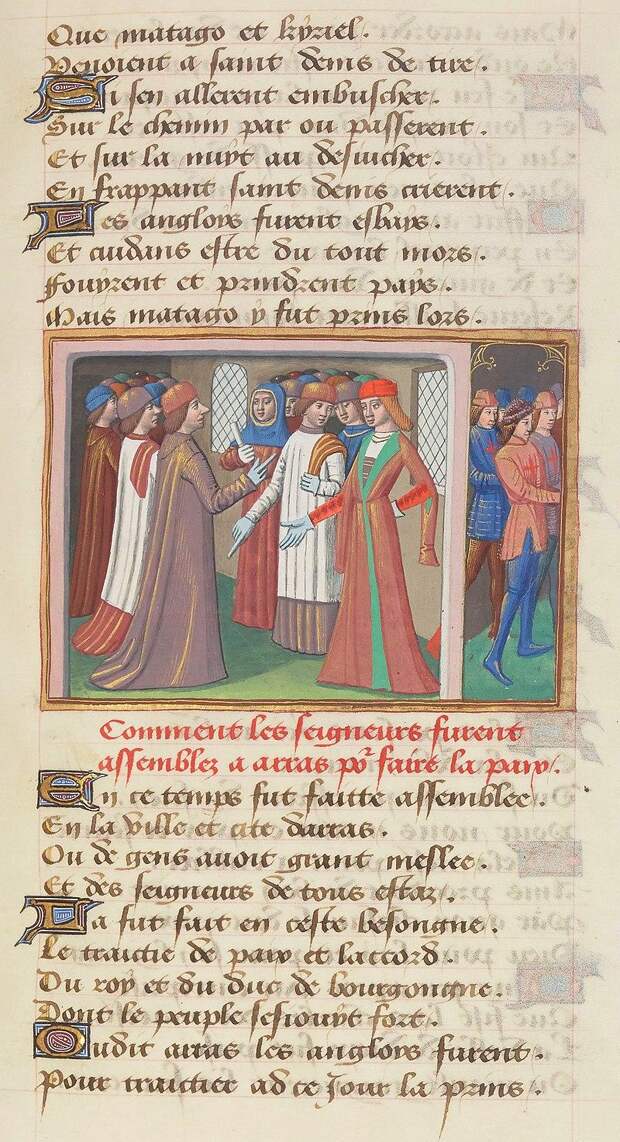 Que matago et kyriel.
Venoient a saint denis de tire.
Si sen allerent embuscher.
Sur le chemin par ou passerent.
Et sur la nuyt au desiucher.
En frappant saint denis crierent.
Les angloys furent esbays.
Et cuidans estre du tout mors.
Fouyrent et prindrent pays.
Mais matago y fut prins lors.
Comment les seigneurs furent
assemblez a arras por faire la paix.
En ce temps fut faitte assemblee.
En la ville et cite darras.
Ou de gens avoit grant meslee.
Et des seigneurs de tous estaz.
La fut fait en ceste besongne.
Le traictie de paix et laccord.
Du roy et du duc de bourgongne.
Dont le peuple sesiouyt fort.
Oudit arras les angloys furent.
Pour traictier ad ce Jour la prins.